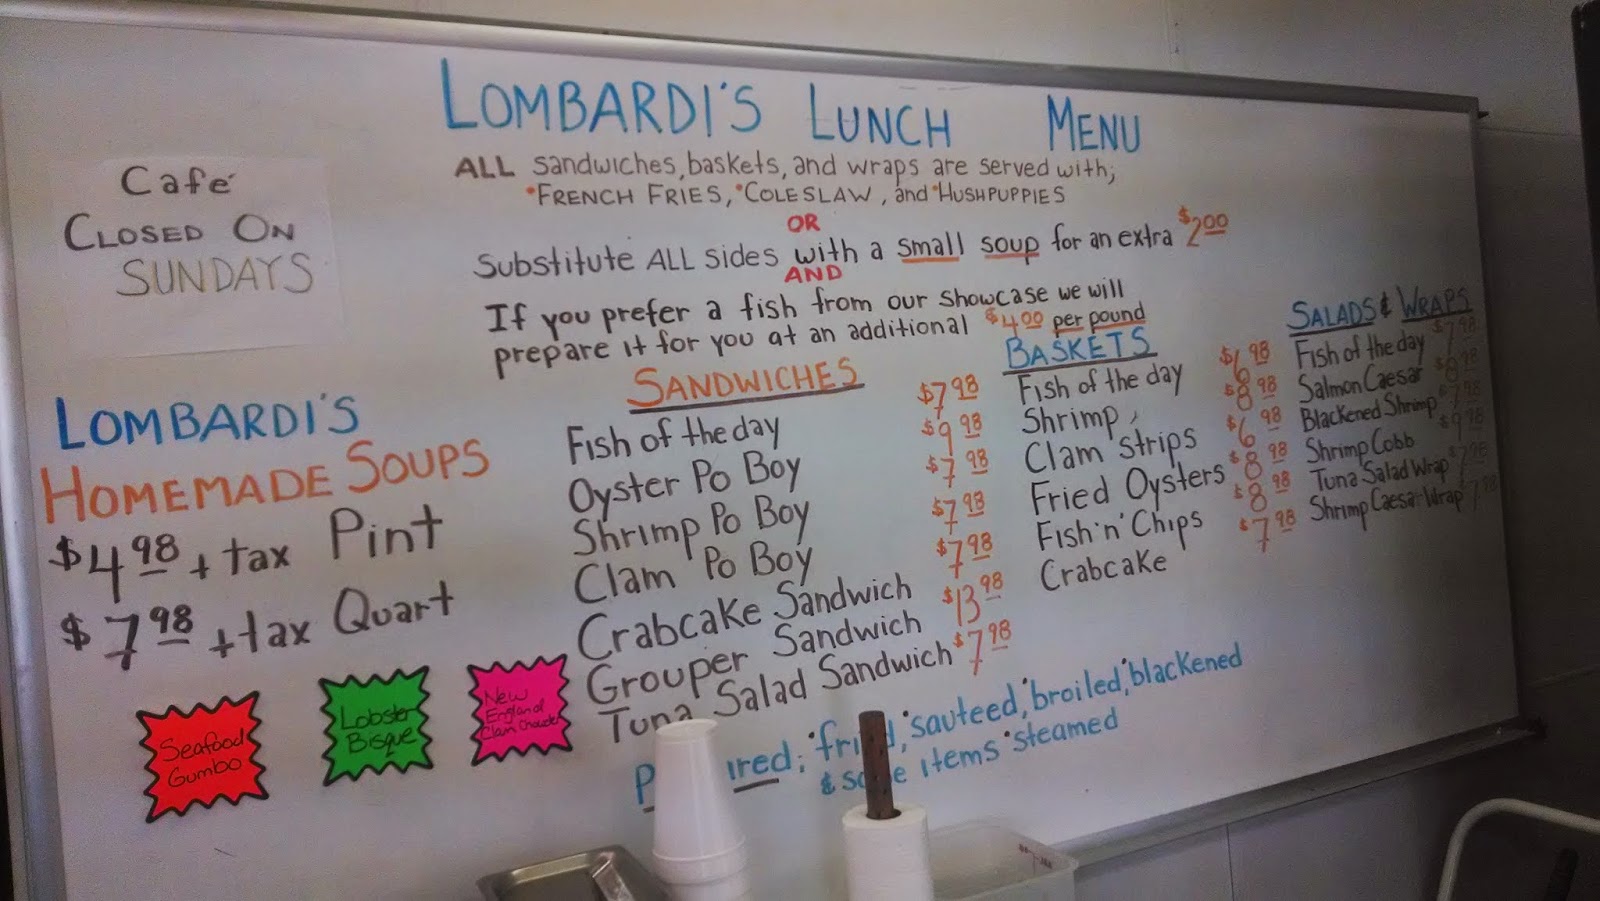 LOMBARDI'S LUNCH MENU
ALL sandwiches, baskets, and wraps are served with;
•FRENCH FRIES, •COLESLAW, and •HUSHPUPPIES
OR
Substitute ALL sides with a small soup for an extra $2.00
AND
If you prefer a fish from our showcase we will
prepare it for you at an additional $4.00 per pound
Café
CLOSED ON
SUNDAYS
LOMBARDI'S
HOMEMADE SOUPS
$4.98 + tax Pint
$7.98 + tax Quart
Seafood
Gumbo
Lobster
Bisque
New
England
Clam Chowder
SANDWICHES
Fish of the day $7.98
Oyster Po Boy $9.98
Shrimp Po Boy $7.98
Clam Po Boy $7.98
Crabcake Sandwich $7.98
Grouper Sandwich $13.98
Tuna Salad Sandwich $7.98
BASKETS
Fish of the day $6.98
Shrimp $8.98
Clam Strips $6.98
Fried Oysters $8.98
Fish 'n' Chips $8.98
Crabcake $7.98
SALADS & WRAPS
Fish of the day $7.98
Salmon Caesar $8.98
Blackened Shrimp $7.98
Shrimp Cobb $9.98
Tuna Salad Wrap $7.98
Shrimp Caesar Wrap $7.98
•fried, •sauteed, •broiled, •blackened
& some items •steamed